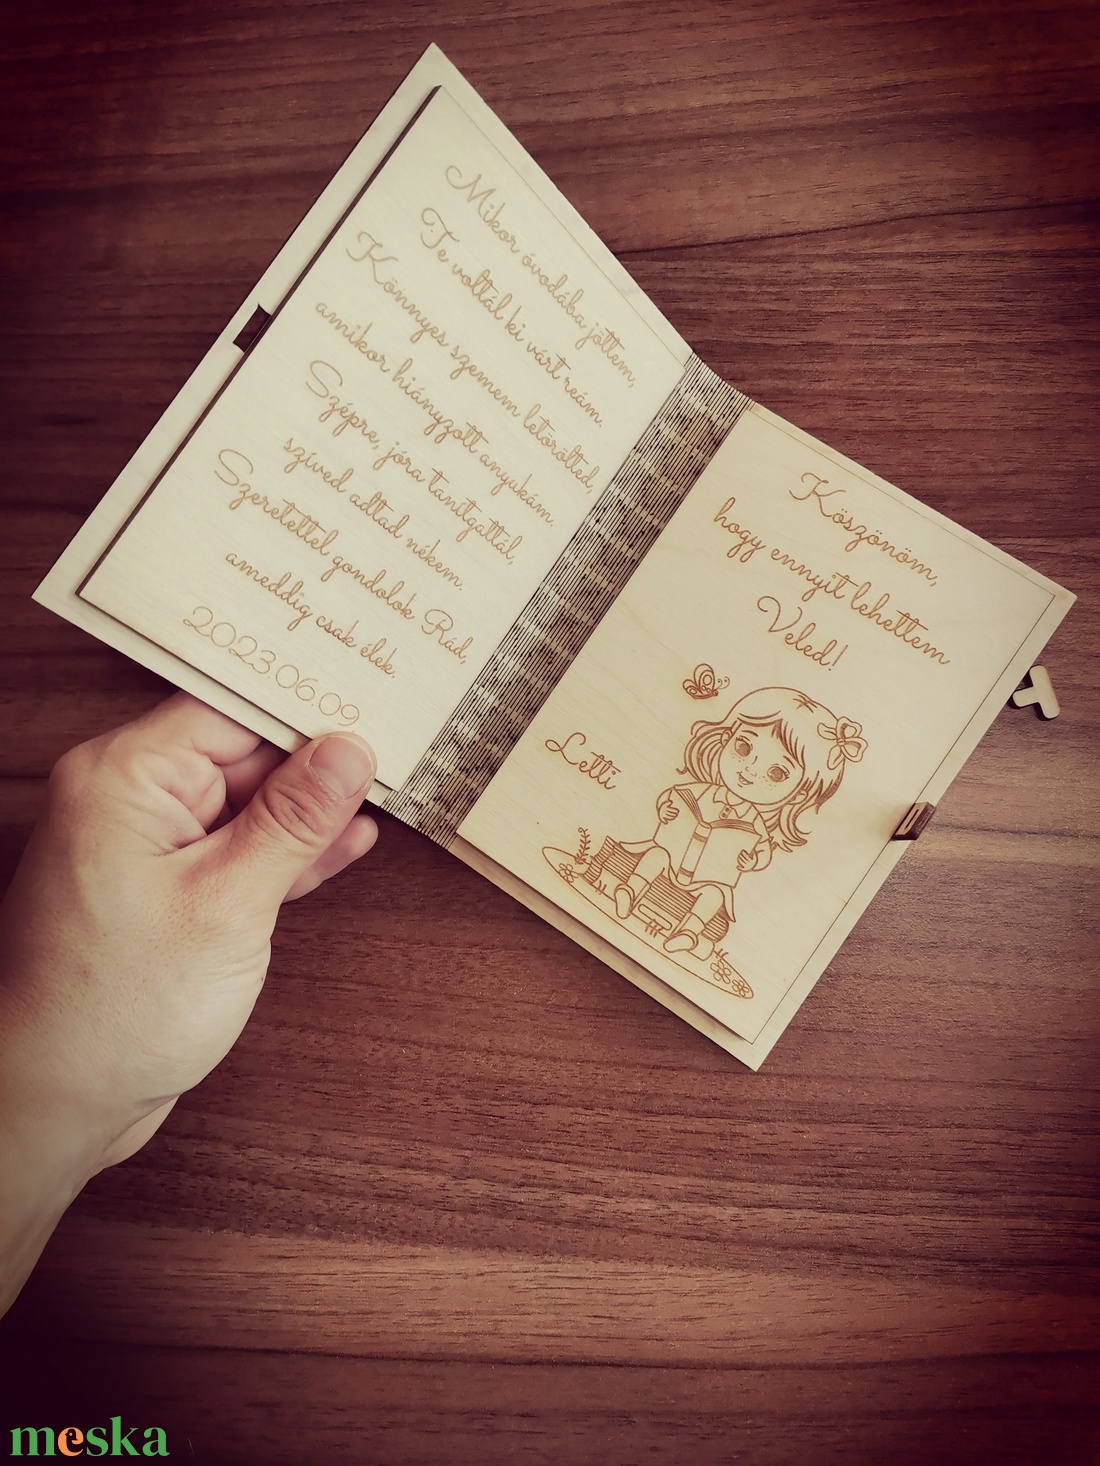 Mikor óvodába jöttem,
Te voltál ki várt reám.
Könnyes szemem letörölted,
amikor hiányzott anyukám.
Szépre, jóra tanítgattál,
szíved adtad nékem.
Szeretettel gondolok Rád,
ameddig csak élek.
2023.06.09
Köszönöm,
hogy ennyit lehettem
Veled!
Letti
meska